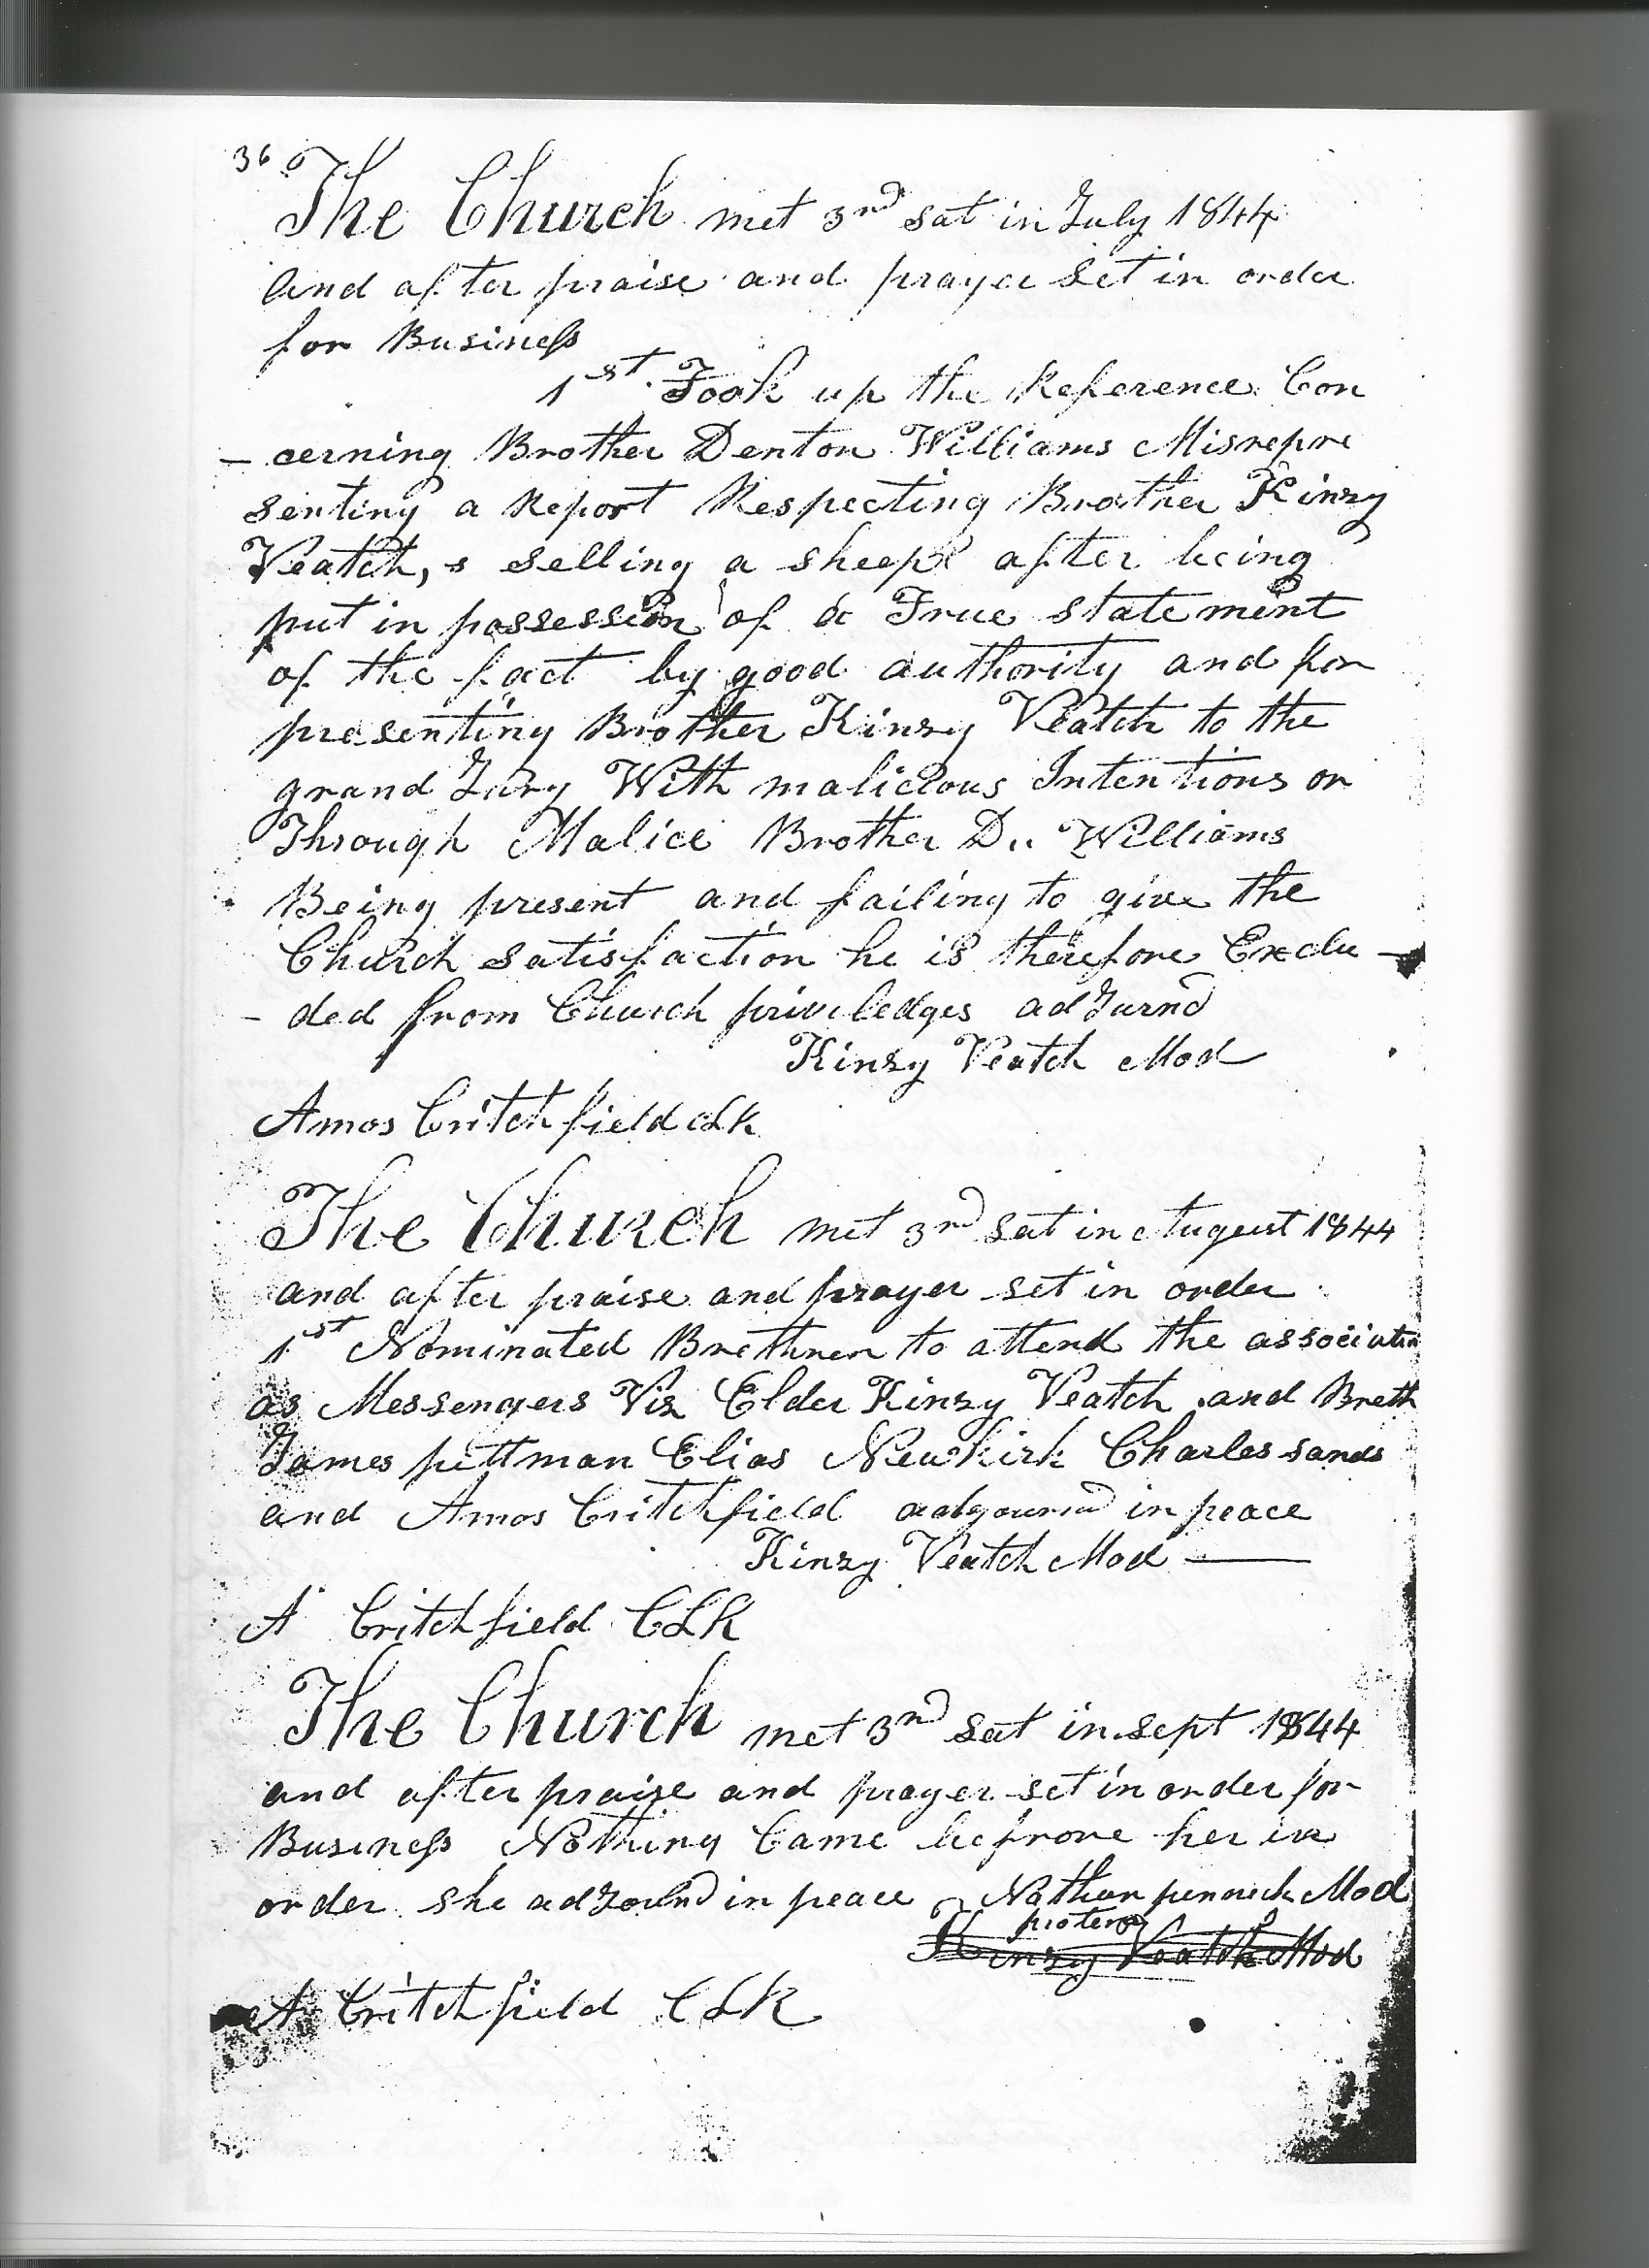 36
The Church met 3rd sat in July 1844
And after praise and prayer set in order
for Business
1st Took up the Reference Con
- cerning Brother Denton Williams Misrepre
senting a Report Respecting Brother Kinzy
Veatch,s selling a sheep after being
put in possession of a True statement
of the fact by good authority and for
presenting Brother Kinzy Veatch to the
grand Jury With malicious Intentions or
Through Malice Brother D.. Williams
Being present and failing to give the
Church satisfaction he is therefore Exclu -
- ded from Church priviledges adJurnd
Kinzy Veatch Mod
Amos Critchfield CLK
The Church met 3rd sat in August 1844
and after praise and prayer set in order
1st Nominated Brethren to attend the association
as Messengers Viz Elder Kinzy Veatch and Breth
James pittman Elias Newkirk Charles sands
and Amos Critchfield adgournd in peace
Kinzy Veatch Mod
A Critchfield CLK
The Church met 3rd sat in sept 1844
and after praise and prayer set in order for
Business Nothing Came befrore her in
order she adJournd in peace Nathan Mod
protem
Kinzy Veatch Mod
A Critchfield CLK